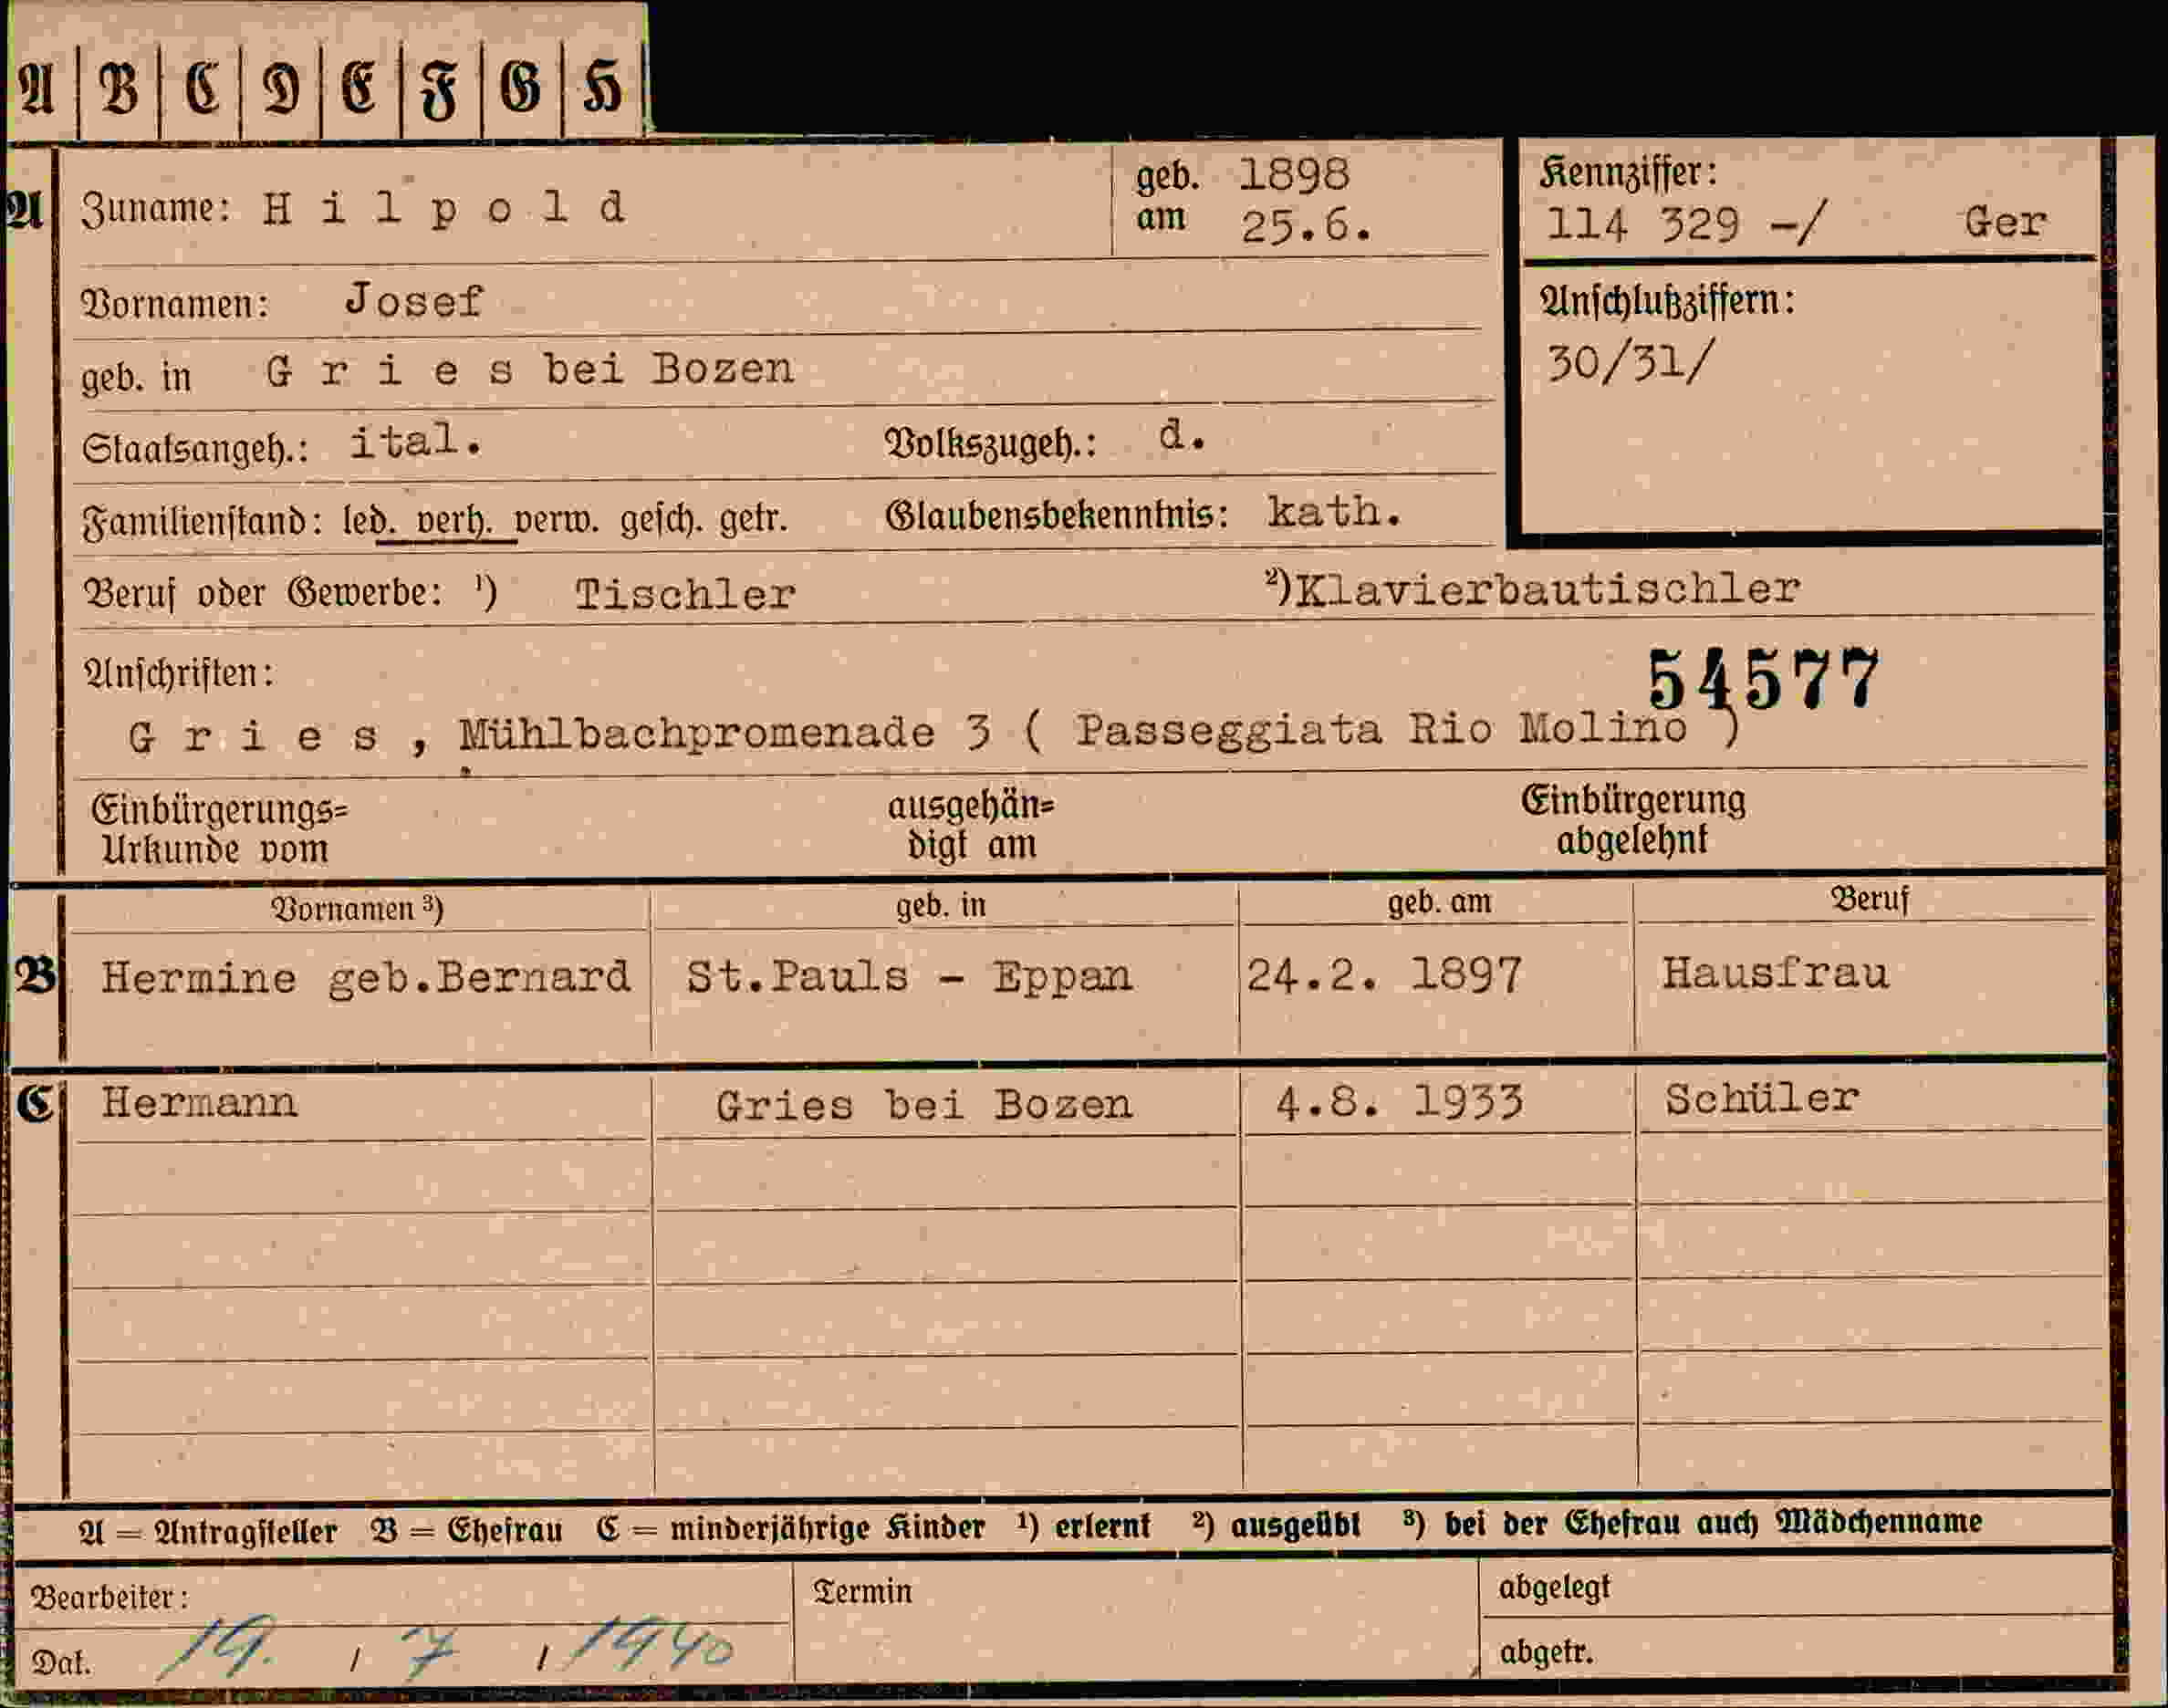 A B C D E F G H
A Zuname: H i l p o l d geb. 1898
am 25.6.
Kennziffer:
114 329 -/ Ger
Vornamen: Josef
Anschlußziffern:
30/31/
geb. in G r i e s bei Bozen
Staatsangeh.: ital. Volkszugeh.: d.
Familienstand: led. verh. verw. gesch. getr. Glaubensbekenntnis: kath.
Beruf oder Gewerbe: ¹) Tischler ²)Klavierbautischler
Anschriften: 54577
G r i e s , Mühlbachpromenade 3 ( Passeggiata Rio Molino )
Einbürgerungs= ausgehän= Einbürgerung
Urkunde vom digt am abgelehnt
Vornamen ³) geb. in geb. am Beruf
B Hermine geb.Bernard St.Pauls - Eppan 24.2. 1897 Hausfrau
C Hermann Gries bei Bozen 4.8. 1933 Schüler
A = Antragsteller B = Ehefrau C = minderjährige Kinder ¹) erlernt ²) ausgeübt ³) bei der Ehefrau auch Mädchenname
Bearbeiter: Termin abgelegt
Dat. 19. / 7 / 1940 abgetr.